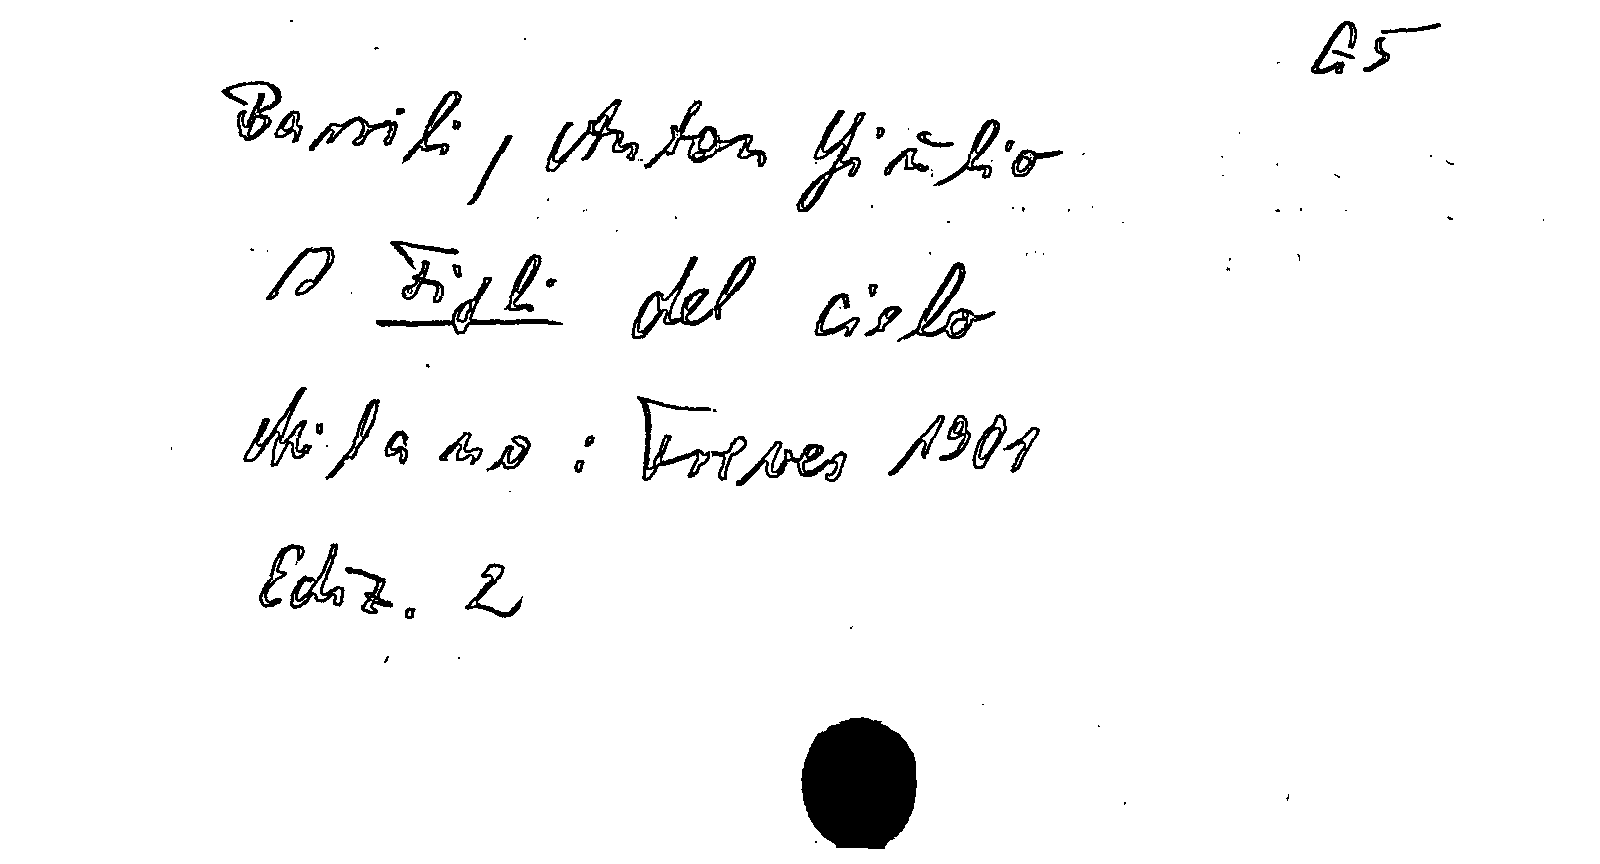 G5
Barrili, Anton Giulio
I Figli del cielo
Milano : Treves 1901
Ediz. 2